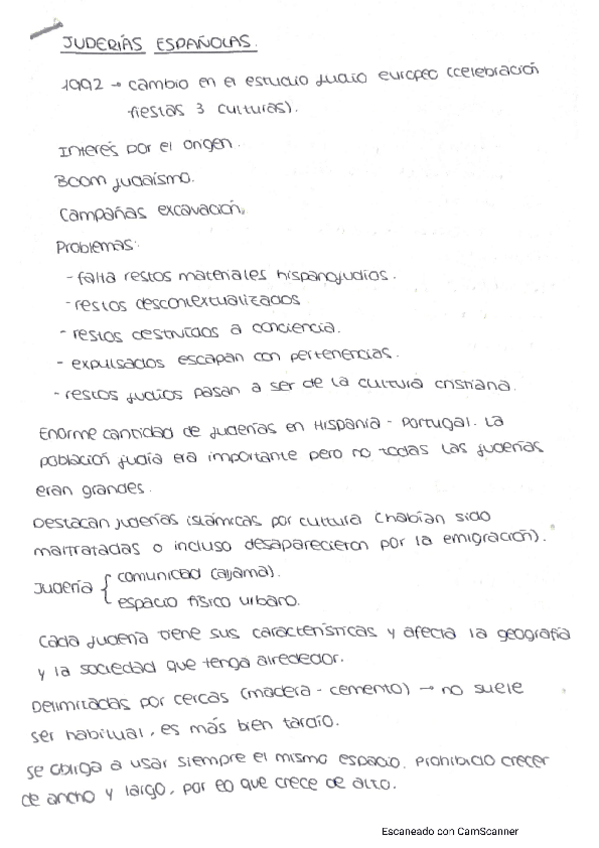 JUDERÍAS ESPAÑOLAS.
1992 → cambio en el estudio judio europeo (celebración
fiestas 3 culturas).
Interés por el origen.
Boom judaísmo.
Campañas excavación,
Problemas:
- falta restos materiales hispanojudios.
- restos descontextualizados
- restos destruidos a conciencia.
- expulsados escapan con pertenencias.
- restos judíos pasan a ser de la cultura cristiana.
Enorme cantidad de juderías en Hispania - Portugal. La
población judía era importante pero no todas las juderías
eran grandes.
Destacan juderías islámicas por cultura (habían sido
maltratadas o incluso desaparecieron por la emigración).
Judería { comunidad (aljama).
espacio físico urbano.
Cada judería tiene sus características y afecta la geografía
y la sociedad que tenga alrededor.
Delimitadas por cercas (madera - cemento) → no suele
ser habitual, es más bien tardío.
Se obliga a usar siempre el mismo espacio. Prohibido crecer
de ancho y largo, por eo que crece de alto.
Escaneado con CamScanner